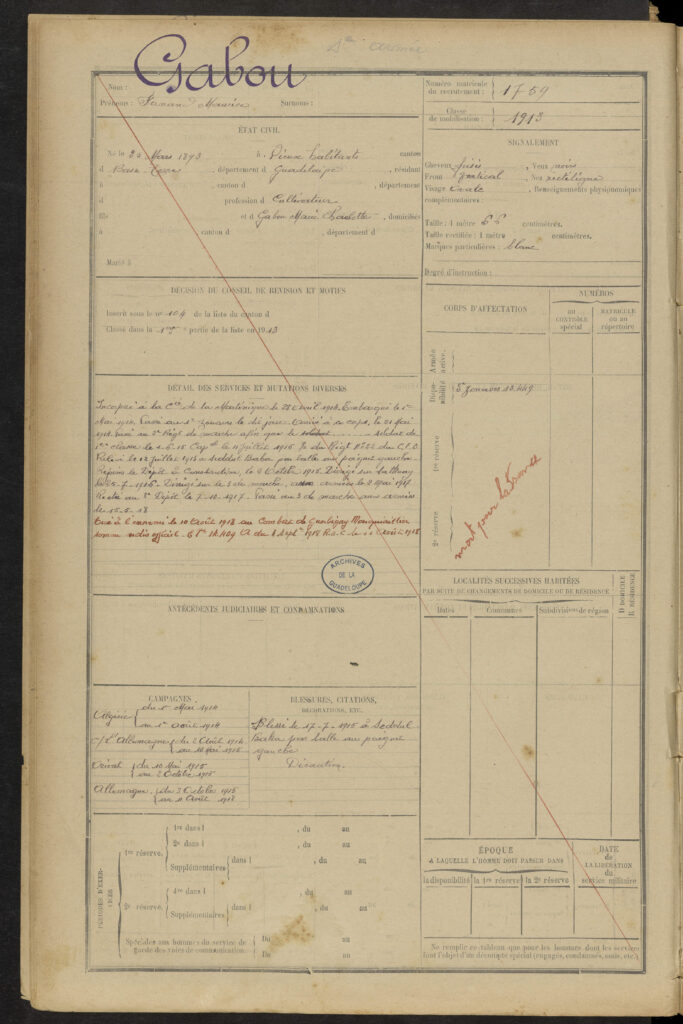 Gabou
Nom :
Prénoms : Maurice Surnoms :
ÉTAT CIVIL.
Né le 25 Mars 1893 à Vieux habitants canton
d Basse Terre, département d Guadeloupe, résidant
à , canton d , département
d , profession d Cultivateur
fils d et d Gabou Marie Charlotte, domiciliés
à , canton d , département d
Marié à
DÉCISION DU CONSEIL DE REVISION ET MOTIFS
Inscrit sous le nº 104 de la liste du canton d
Classé dans la 1re partie de la liste en 1913
DÉTAIL DES SERVICES ET MUTATIONS DIVERSES
Incorporé à la Cie de la Martinique le 28 Avril 1914. Embarqué le 1er
Mai 1914. Passé au 1er zouaves le dit jour. Arrivé au corps, le 21 Mai
1914. Passé au 2e Régt de marche d'afrique le soldat de
1ère classe le
Blessé le 17 juillet 1915 à Seddul Bahr par balle au poignet gauche
Rejoins le Dépôt à Constantine, le 2 Octobre 1915. Dirigé sur
le 25-7-1916. Dirigé sur le 3 de marche, aux armées le 2 Mai 1917
Rentré au Dépôt le 7-10-1917. Passé au 3 de marche aux armées
le 15-5-18
tué à l'ennemi le 10 Août 1918 au Combat de
ARCHIVES
DE LA
GUADELOUPE
ANTÉCÉDENTS JUDICIAIRES ET CONDAMNATIONS
CAMPAGNES
Algérie du 1er Mai 1914
au 1er août 1914
c/ l'Allemagne du 2 Août 1914
au 10 Mai 1915
Orient du 10 Mai 1915
au 2 Octobre 1915
Allemagne du 3 Octobre 1915
au 11 Août 1918
BLESSURES, CITATIONS,
DÉCORATIONS, ETC.
Blessé le 17-7-1915 à Seddul
Bahr par balle au poignet
gauche
Décoration.
PÉRIODES D'EXERCICES
1re réserve.
1re dans l , du au
2e dans l , du au
Supplémentaires dans l , du au
2e réserve.
1re dans l , du au
Supplémentaires dans l , du au
Spéciales aux hommes du service de
garde des voies de communication.
Du au
Du au
Numéro matricule
du recrutement : 1759
Classe
de mobilisation : 1913
SIGNALEMENT
Cheveux frisés, Yeux noirs
Front vertical, Nez rectiligne
Visage ovale, Renseignements physionomiques
complémentaires :
Taille : 1 mètre 66 centimètres.
Taille rectifiée : 1 mètre centimètres.
Marques particulières :
Degré d'instruction :
CORPS D'AFFECTATION
NUMÉROS
AU CONTRÔLE spécial
MATRICULE OU AU répertoire
Armée active.
Disponibilité
3e zouaves 13.449
1re réserve
2e réserve
mort pour la France
LOCALITÉS SUCCESSIVES HABITÉES
PAR SUITE DE CHANGEMENTS DE DOMICILE OU DE RÉSIDENCE
D DOMICILE
R RÉSIDENCE
Dates
Communes
Subdivisions de région
ÉPOQUE
A LAQUELLE L'HOMME DOIT PASSER DANS
la disponibilité
la 1re réserve
la 2e réserve
DATE
DE LA LIBÉRATION
du
service militaire
Ne remplir ce tableau que pour les hommes dont les services
font l'objet d'un décompte spécial (engagés, condamnés, omis, etc.)